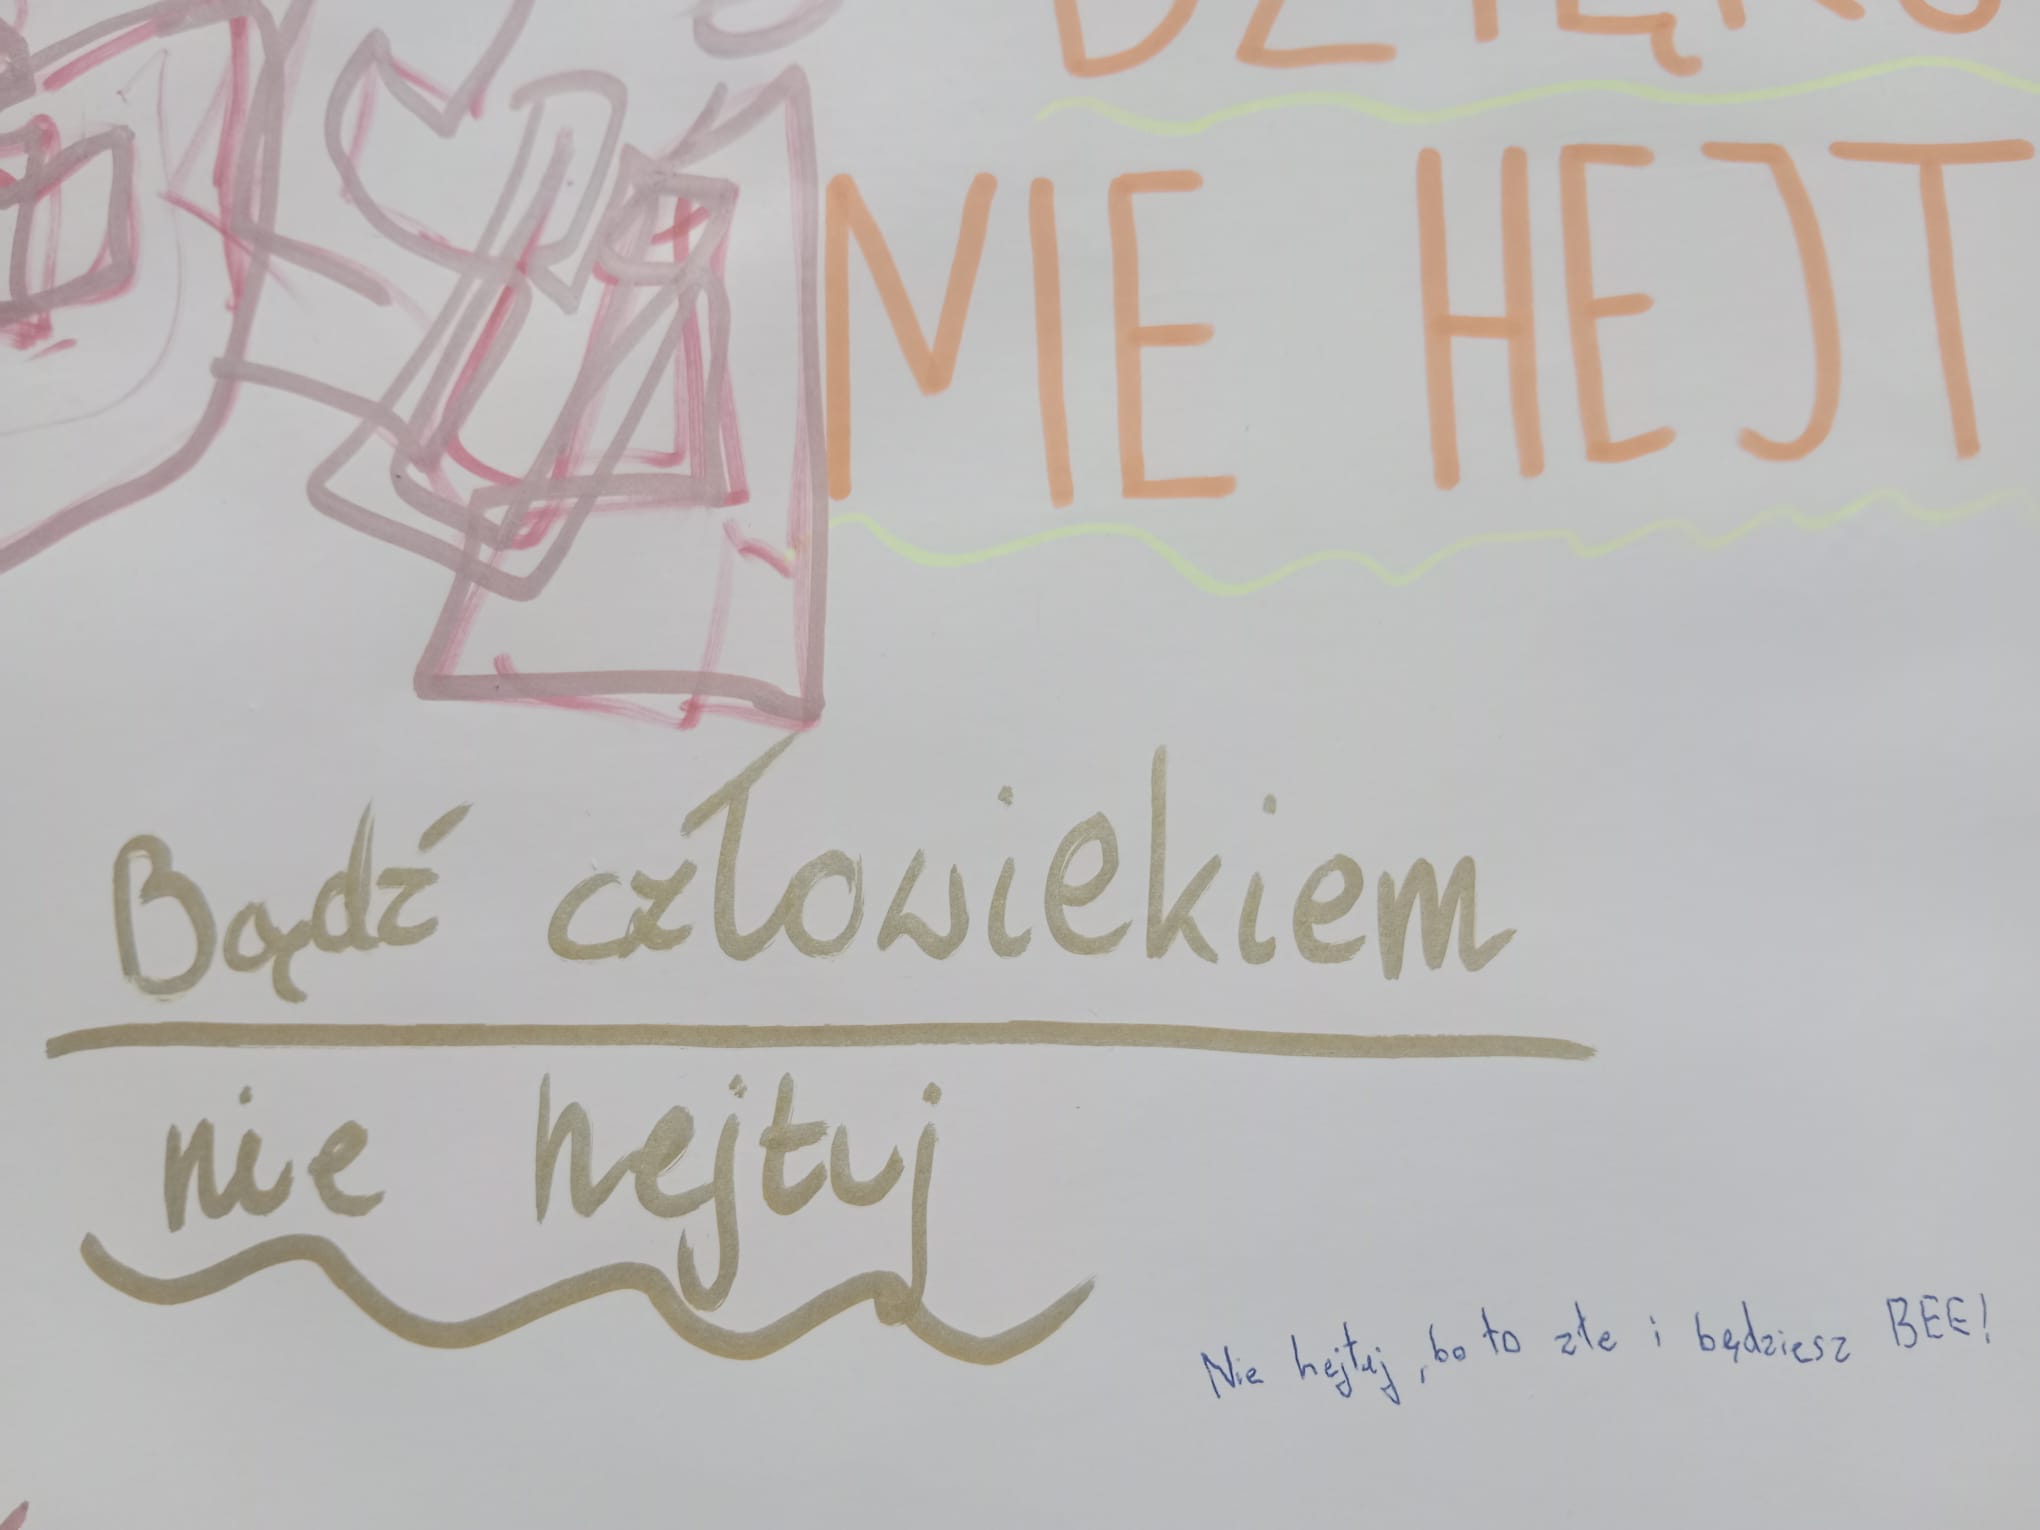 NIE HEJT
Bądź człowiekiem
nie hejtuj
Nie hejtuj, bo to złe i będziesz BEE!